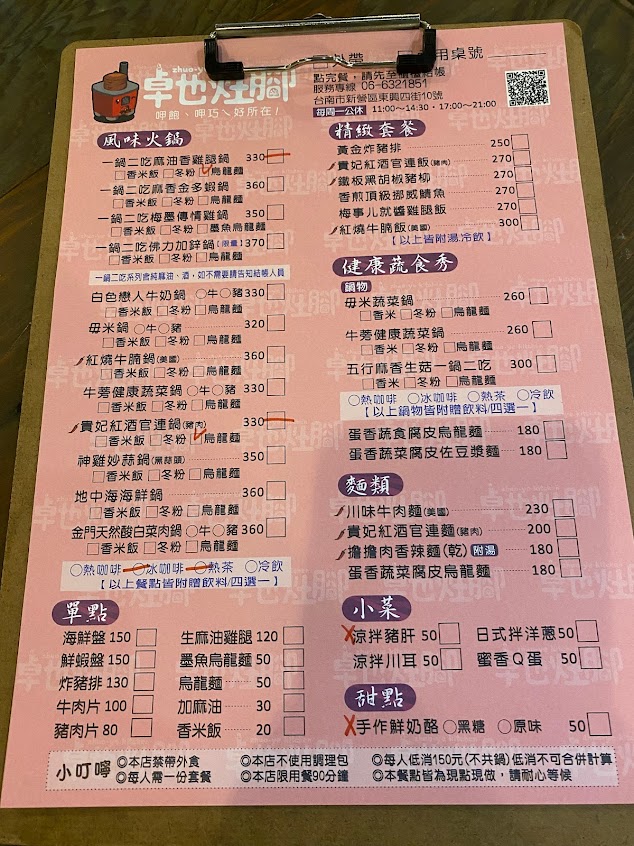 zhuo-y
卓也灶腳
呷飽、呷巧ㄟ好所在!
外帶 用桌號
點完餐,請先至櫃檯結帳
服務專線 06-6321851
台南市新營區東興四街10號
每周一公休 11:00~14:30・17:00~21:00
風味火鍋
一鍋二吃麻油香雞腿鍋 330
香米飯 冬粉 烏龍麵
一鍋二吃麻香金多蝦鍋 360
香米飯 冬粉 烏龍麵
一鍋二吃梅墨傳情雞鍋 350
香米飯 冬粉 墨魚烏龍麵
一鍋二吃佛力加鋅鍋【限量】370
香米飯 冬粉 烏龍麵
一鍋二吃系列會純麻油、酒,如不需要請告知結帳人員
白色戀人牛奶鍋 ○牛○豬 330
香米飯 冬粉 烏龍麵
毋米鍋 ○牛○豬 320
香米飯 冬粉 烏龍麵
紅燒牛腩鍋(美國) 360
香米飯 冬粉 烏龍麵
牛蒡健康蔬菜鍋 ○牛○豬 330
香米飯 冬粉 烏龍麵
貴妃紅酒官連鍋(豬肉) 330
香米飯 冬粉 烏龍麵
神雞妙蒜鍋(黑蒜頭) 350
香米飯 冬粉 烏龍麵
地中海海鮮鍋 360
香米飯 冬粉 烏龍麵
金門天然酸白菜肉鍋 ○牛○豬 360
香米飯 冬粉 烏龍麵
○熱咖啡 ○冰咖啡 ○熱茶 ○冷飲
【以上餐點皆附贈飲料/四選一】
單點
海鮮盤 150 生麻油雞腿 120
鮮蝦盤 150 墨魚烏龍麵 50
炸豬排 130 烏龍麵 50
牛肉片 100 加麻油 30
豬肉片 80 香米飯 20
精緻套餐
黃金炸豬排 250
貴妃紅酒官連飯(豬肉) 270
鐵板黑胡椒豬柳 270
香煎頂級挪威鯖魚 270
梅事儿就醬雞腿飯 270
紅燒牛腩飯(美國) 300
【以上皆附湯.冷飲】
健康蔬食秀
鍋物
毋米蔬菜鍋 260
香米 冬粉 烏龍麵
牛蒡健康蔬菜鍋 260
香米 冬粉 烏龍麵
五行麻香生菇一鍋二吃 300
香米 冬粉 烏龍麵
○熱咖啡 ○冰咖啡 ○熱茶 ○冷飲
【以上鍋物皆附贈飲料/四選一】
蛋香蔬食腐皮烏龍麵 180
蛋香蔬菜腐皮佐豆漿麵 180
麵類
川味牛肉麵(美國) 230
貴妃紅酒官連麵(豬肉) 200
擔擔肉香辣麵(乾) 附湯 180
蛋香蔬菜腐皮烏龍麵 180
小菜
涼拌豬肝 50 日式拌洋蔥 50
涼拌川耳 50 蜜香Q蛋 50
甜點
手作鮮奶酪 ○黑糖 ○原味 50
小叮嚀
◎本店禁帶外食 ◎本店不使用調理包 ◎每人低消150元(不共鍋)低消不可合併計算
◎每人需一份套餐 ◎本店限用餐90分鐘 ◎本餐點皆為現點現做,請耐心等候